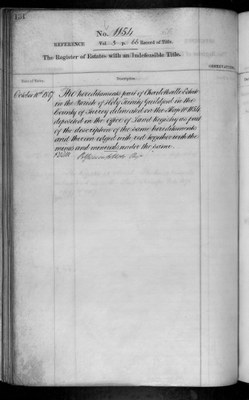 134
No. 1154
REFERENCE Vol 3 p. 66 Record of Title.
The Register of Estates with an Indefeasible Title.
Date of Entry. Description.
October 10th 1867 The hereditaments part of Charlotteville Estate
in the Parish of Holy Trinity Guildford in the
County of Surrey delineated on the Map No 1154
deposited in the Office of Land Registry as part
of the description of the same hereditaments
and thereon edged with red together with the
mines and minerals under the same.